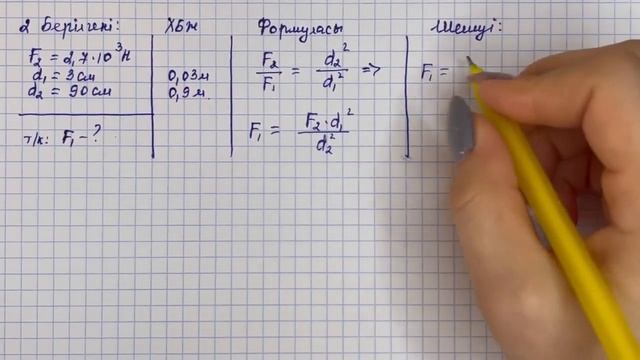 2 Берілгені:
F₂ = 2,7·10³Н
d₁ = 3см
d₂ = 90см
т/к: F₁ - ?
ХБЖ
0,03м
0,9м.
Формуласы
F₂/F₁ = d₂²/d₁² =>
F₁ = F₂·d₁²/d₂²
Шешуі:
F₁ =